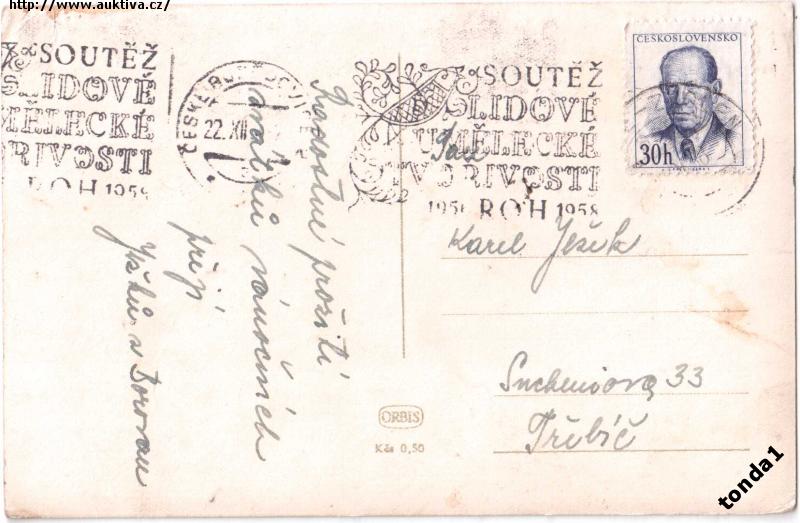 http://www.auktiva.cz/
SOUTĚŽ
LIDOVÉ
MĚLECKÉ
OŘIVOSTI
ROH 1958
ČESKÉ BUDĚJOVICE
22.XII
SOUTĚŽ
LIDOVÉ
UMĚLECKÉ
TVOŘIVOSTI
1956 ROH 1958
ČESKOSLOVENSKO
30h
Radostné prožití
svátků vánočních
přejí
z Borovan
Pan
Karel Ješek
33
Třebíč
ORBIS
Kčs 0,50
tonda1